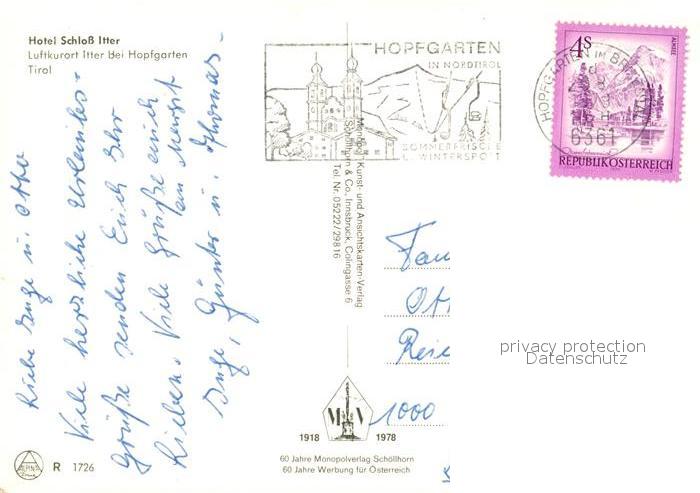 Hotel Schloß Itter
Luftkurort Itter Bei Hopfgarten
Tirol
Liebe Inge u. Otto
Viele herzliche Urlaubs-
Grüße senden Euch Ihr
Lieben. Viele Grüße auch
an
Inge, Günter u. Thomas.
HOPFGARTEN
IN NORDTIROL
SOMMERFRISCHE
WINTERSPORT
HOPFGARTEN IM
6361
4S
ALMSEE
REPUBLIK ÖSTERREICH
Monopol Kunst- und Ansichtskarten-Verlag
Schöllhorn & Co., Innsbruck, Colingasse 6
Tel. Nr. 05222/29816
Fam
Ott
1000
privacy protection
Datenschutz
M V
1918 1978
60 Jahre Monopolverlag Schöllhorn
60 Jahre Werbung für Österreich
R 1726